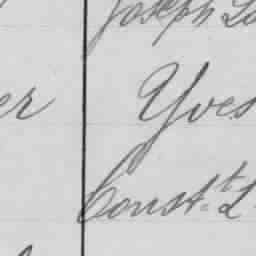 Joseph Lo
er Yves
Const.t L